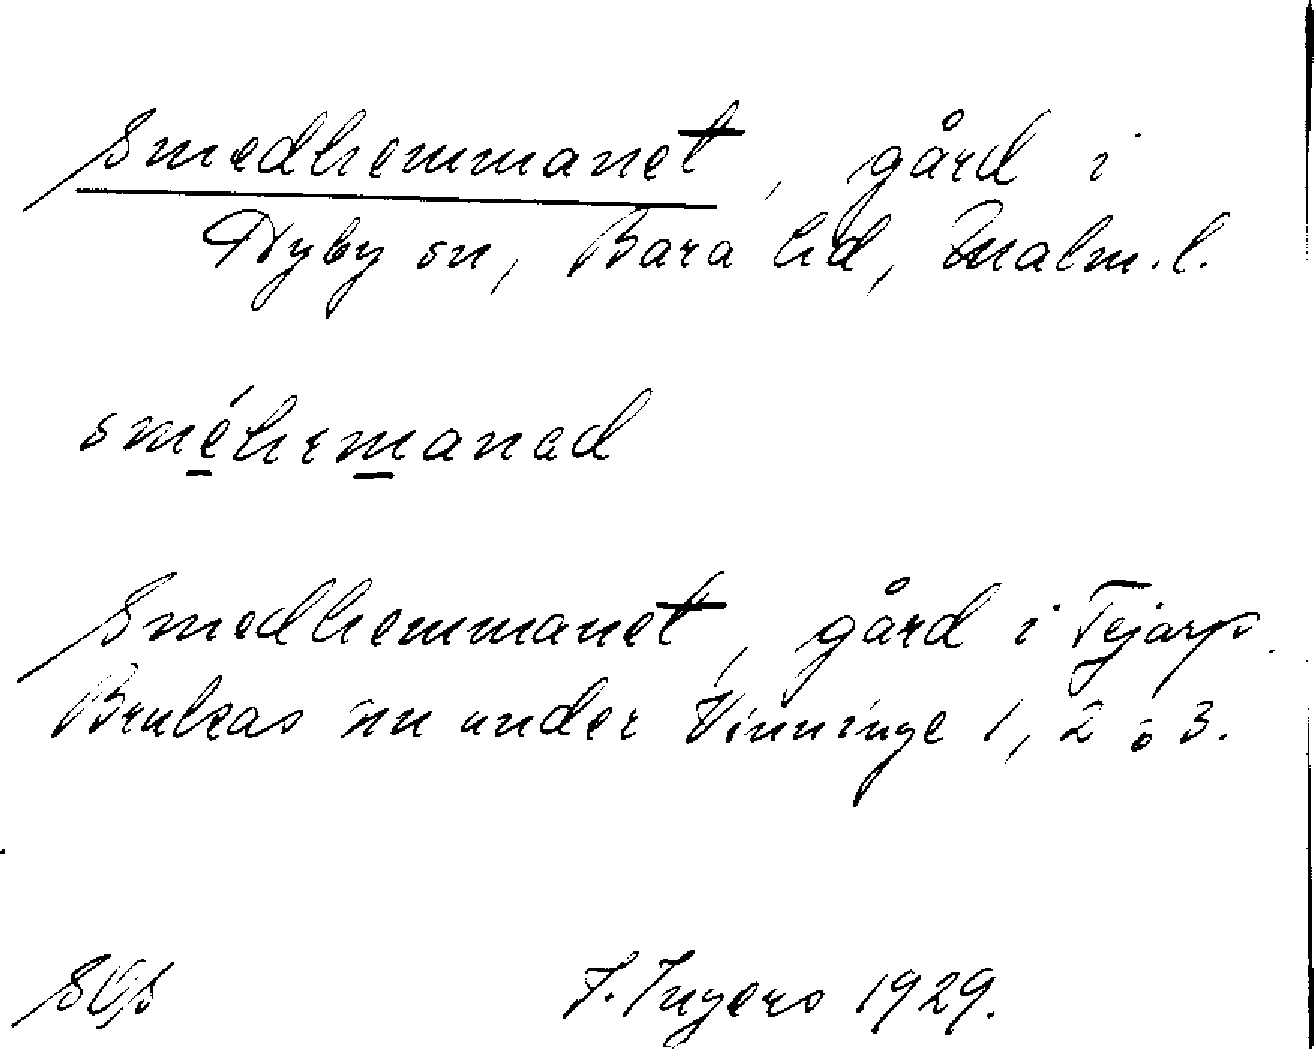 Smedhemmanet, gård i
Hyby sn, Bara hd, Malm. l.
sméhemanad
Smedhemmanet, gård i Tejarp.
Brukas nu under Vinninge 1, 2 o 3.
I. Ingers 1929.